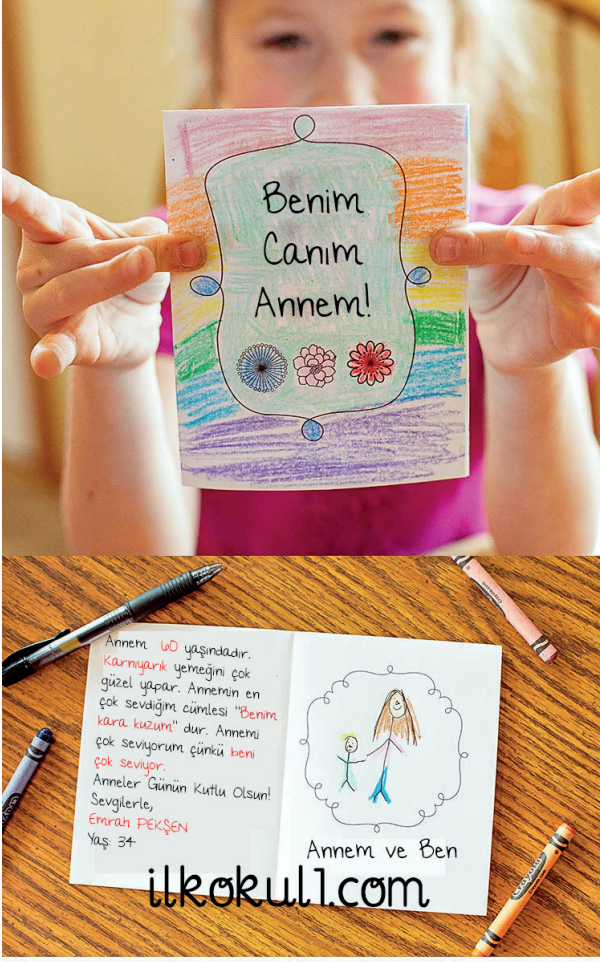 Benim
Canım
Annem!
Annem 60 yaşındadır.
Karnıyarık yemeğini çok
güzel yapar. Annemin en
çok sevdiğim cümlesi "Benim
kara kuzum" dur. Annemi
çok seviyorum çünkü beni
çok seviyor.
Anneler Günün Kutlu Olsun!
Sevgilerle,
Emrah PEKŞEN
Yaş: 34
Annem ve Ben
ilkokul1.com